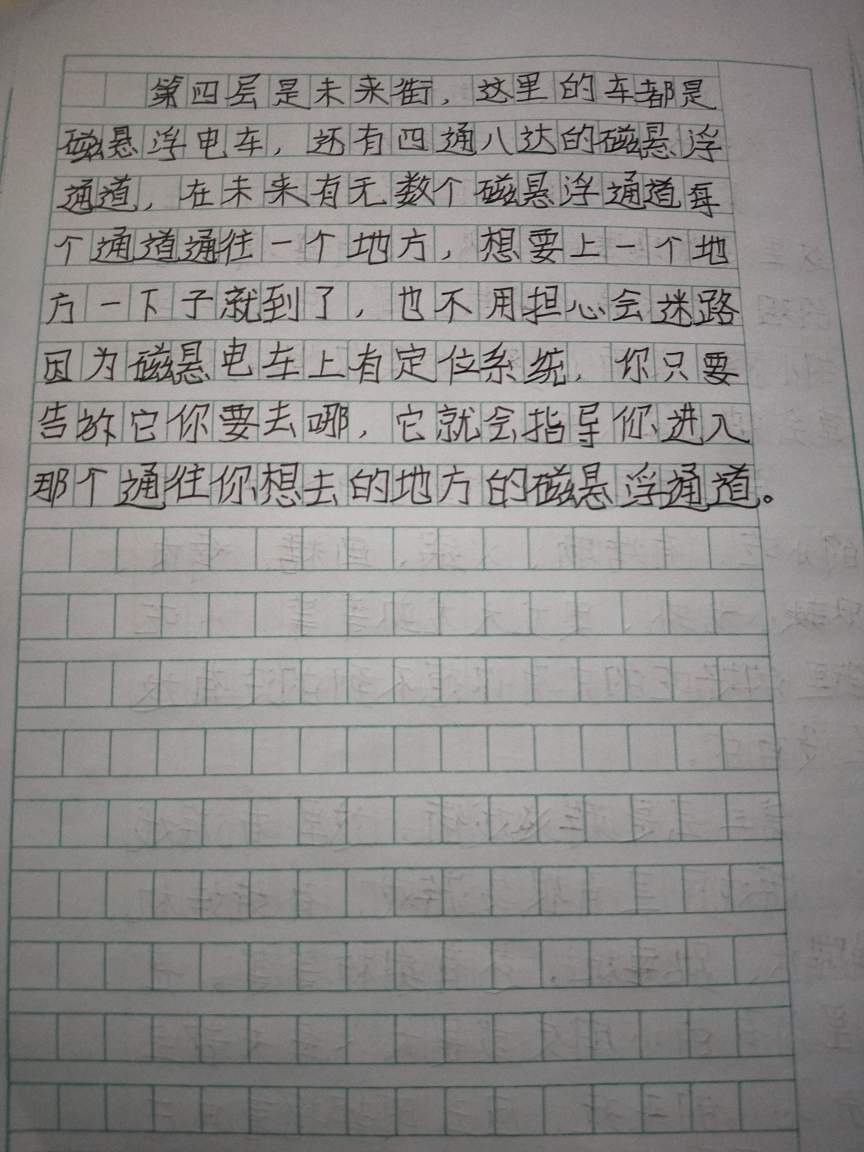 第四层是未来街，这里的车都是
磁悬浮电车，还有四通八达的磁悬浮
通道，在未来有无数个磁悬浮通道每
个通道通往一个地方，想要上一个地
方一下子就到了，也不用担心会迷路
因为磁悬电车上有定位系统，你只要
告诉它你要去哪，它就会指导你进入
那个通往你想去的地方的磁悬浮通道。